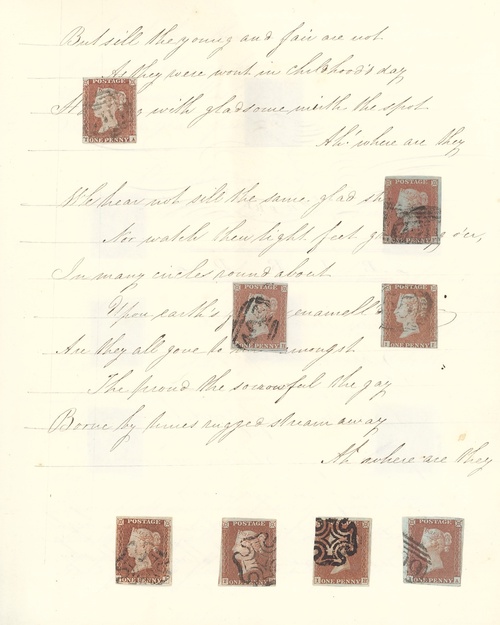 But still the young and fair are not
As they were wont in childhood's day
with gladsome mirth the spot
Ah! where are they
We hear not still the same glad
Nor watch their light feet o'er,
In many circles round about
Upon earth's enamell'd
Are they all gone to amongst
The proud the sorrowful the gay
Borne by times rugged stream away
Ah where are they
POSTAGE
ONE PENNY
POSTAGE
ONE PENNY
POSTAGE
ONE PENNY
POSTAGE
ONE PENNY
POSTAGE
ONE PENNY
POSTAGE
ONE PENNY
ONE PENNY
POSTAGE
ONE PENNY